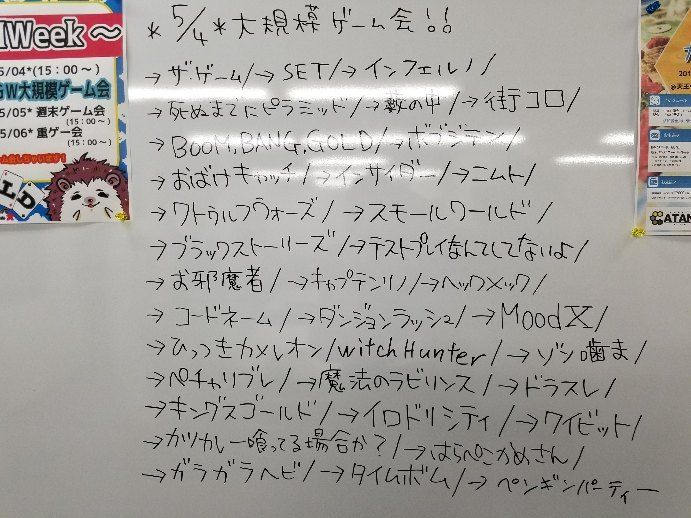 IWeek〜
5/04*(15：00〜)
GW大規模ゲーム会
5/05* 週末ゲーム会
(15：00〜)
5/06* 重ゲー会
(15：00〜)
* 5/4 * 大規模ゲーム会!!
→ザ・ゲーム/→SET/→インフェルノ/
→死ぬまでにピラミッド/→藪の中/→街コロ/
→BOOM,BANG,GOLD/→ボブジテン/
→おばけキャッチ/→インサイダー/→ニムト/
→クトゥルフウォーズ/→スモールワールド/
→ブラックストーリーズ/→テストプレイなんてしてないよ/
→お邪魔者/→キャプテンリノ/→ヘックメック/
→コードネーム/→ダンジョンラッシュ/→Mood X/
→ひっつきカメレオン/witch Hunter/→ゾン噛ま/
→ペチャリブレ/→魔法のラビリンス/→ドラスレ/
→キングスゴールド/→イロドリシティ/→クイビット/
→カツカレー喰ってる場合か?/→はらぺこかめさん/
→ガラガラヘビ/→タイムボム/→ペンギンパーティー
201
ATAN